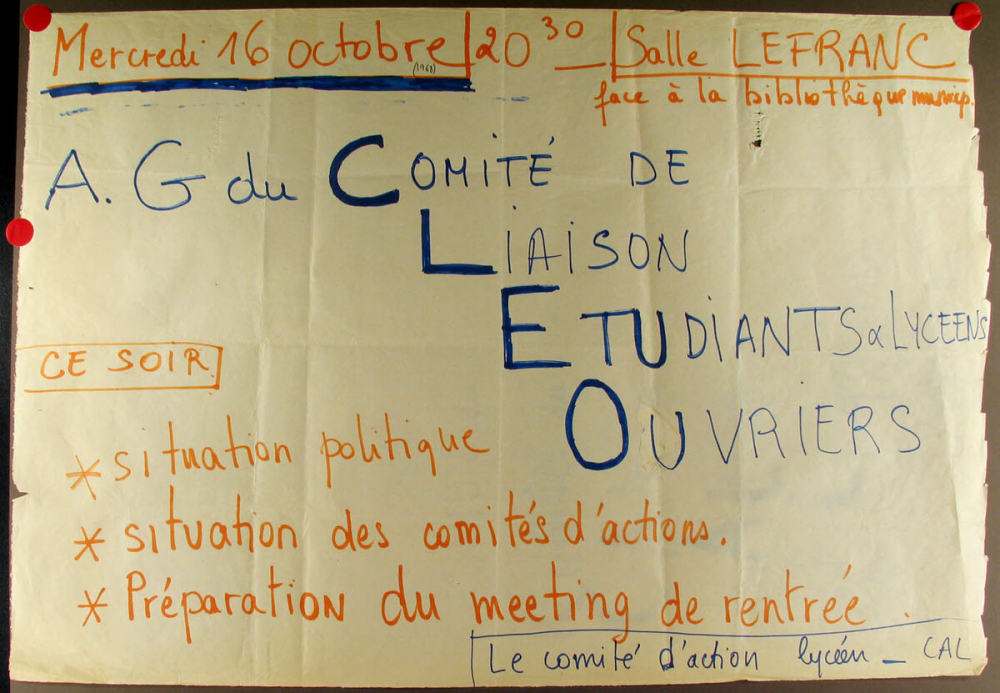 Mercredi 16 octobre 20 30 — Salle LEFRANC
(1968)
face à la bibliothèque municip.
A. G du COMITÉ DE
LIAISON
ETUDIANTS & LYCEENS
OUVRIERS
CE SOIR
* situation politique
* situation des comités d'actions.
* Préparation du meeting de rentrée.
Le comité d'action lycéen - CAL